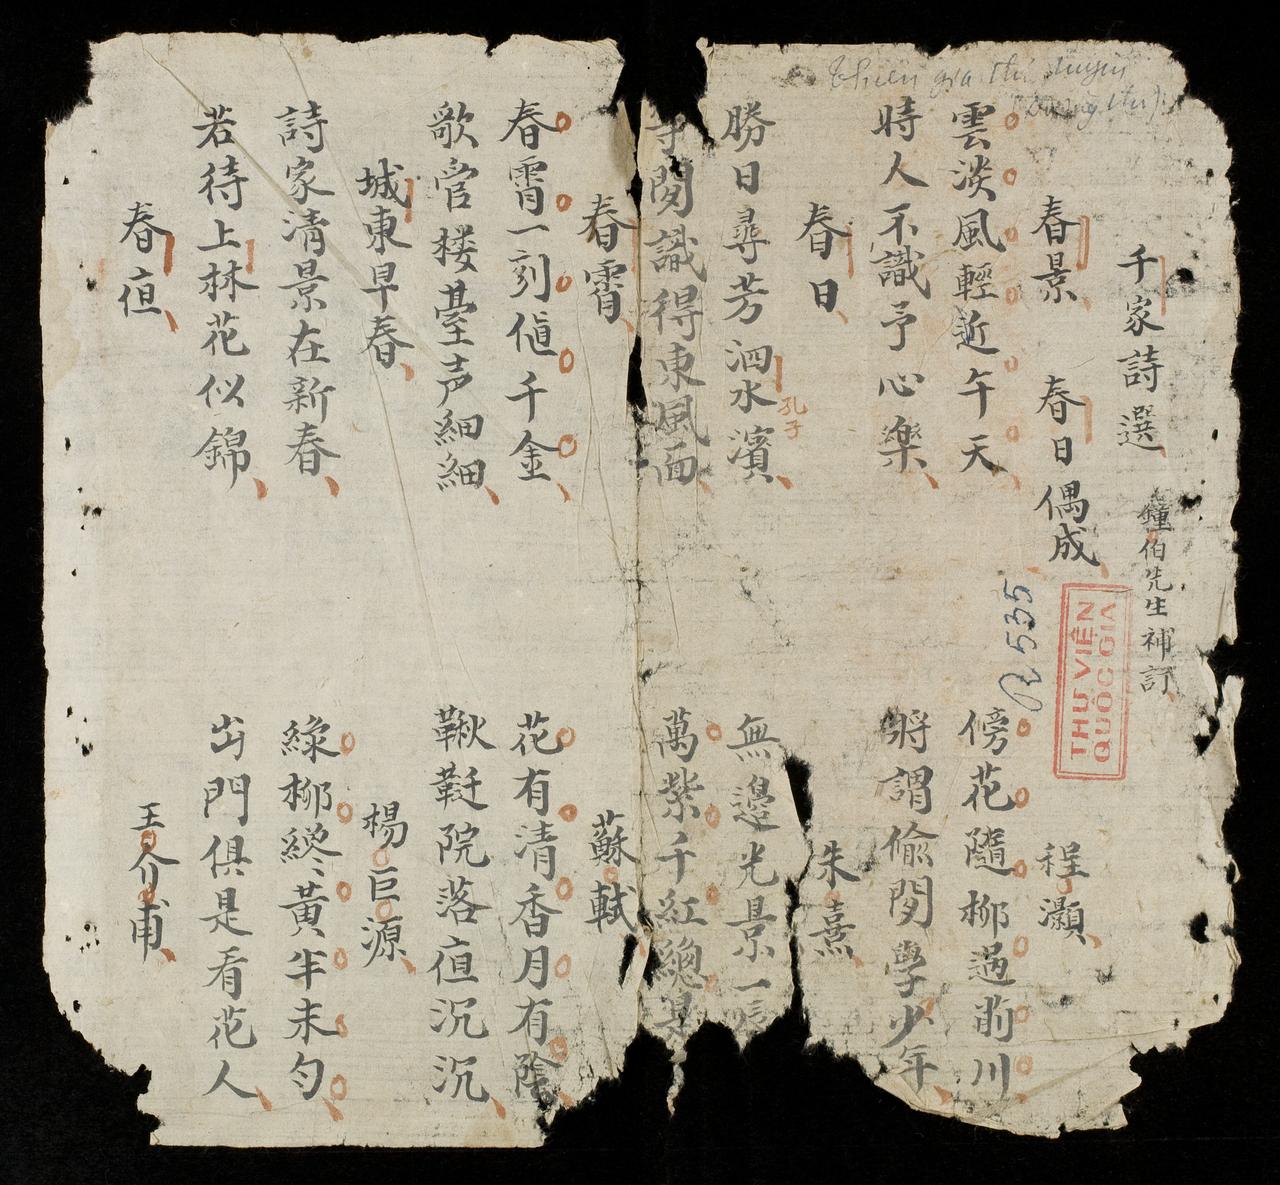 Thiên gia thi tuyển
(Đường thi)
千家詩選 鍾伯先生補訂
春景 春日偶成 程灝
雲淡風輕近午天 傍花隨柳過前川
時人不識予心樂 將謂偷閒學少年
春日 朱熹
勝日尋芳泗水濱 無邊光景一
孔子
等閒識得東風面 萬紫千紅總是
春霄 蘇軾
春霄一刻值千金 花有清香月有陰
歌管楼臺声細細 鞦韆院落夜沉沉
城東早春 楊巨源
詩家清景在新春 綠柳纔黃半未勻
若待上林花似錦 出門俱是看花人
春夜 王介甫
R535
THƯ VIỆN
QUỐC GIA